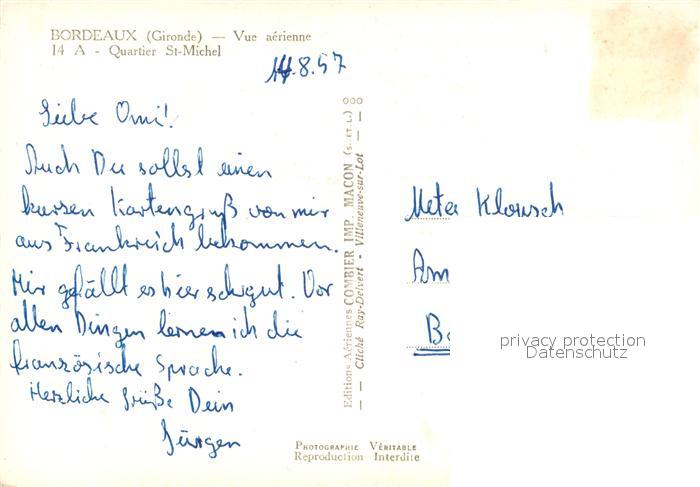 BORDEAUX (Gironde) — Vue aérienne
14 A - Quartier St-Michel
14.8.57
Liebe Omi!
Auch Du sollst einen
kurzen Kartengruß von mir
aus Frankreich bekommen.
Mir gefällt es hier sehr gut. Vor
allen Dingen lerne ich die
französische Sprache.
Herzliche Grüße Dein
Jürgen
Editions Aériennes COMBIER IMP. MACON (S.-ET-L.)
— Cliché Ray-Delvert - Villeneuve-sur-Lot —
Meta
Am
privacy protection
Datenschutz
PHOTOGRAPHIE VÉRITABLE
Reproduction Interdite